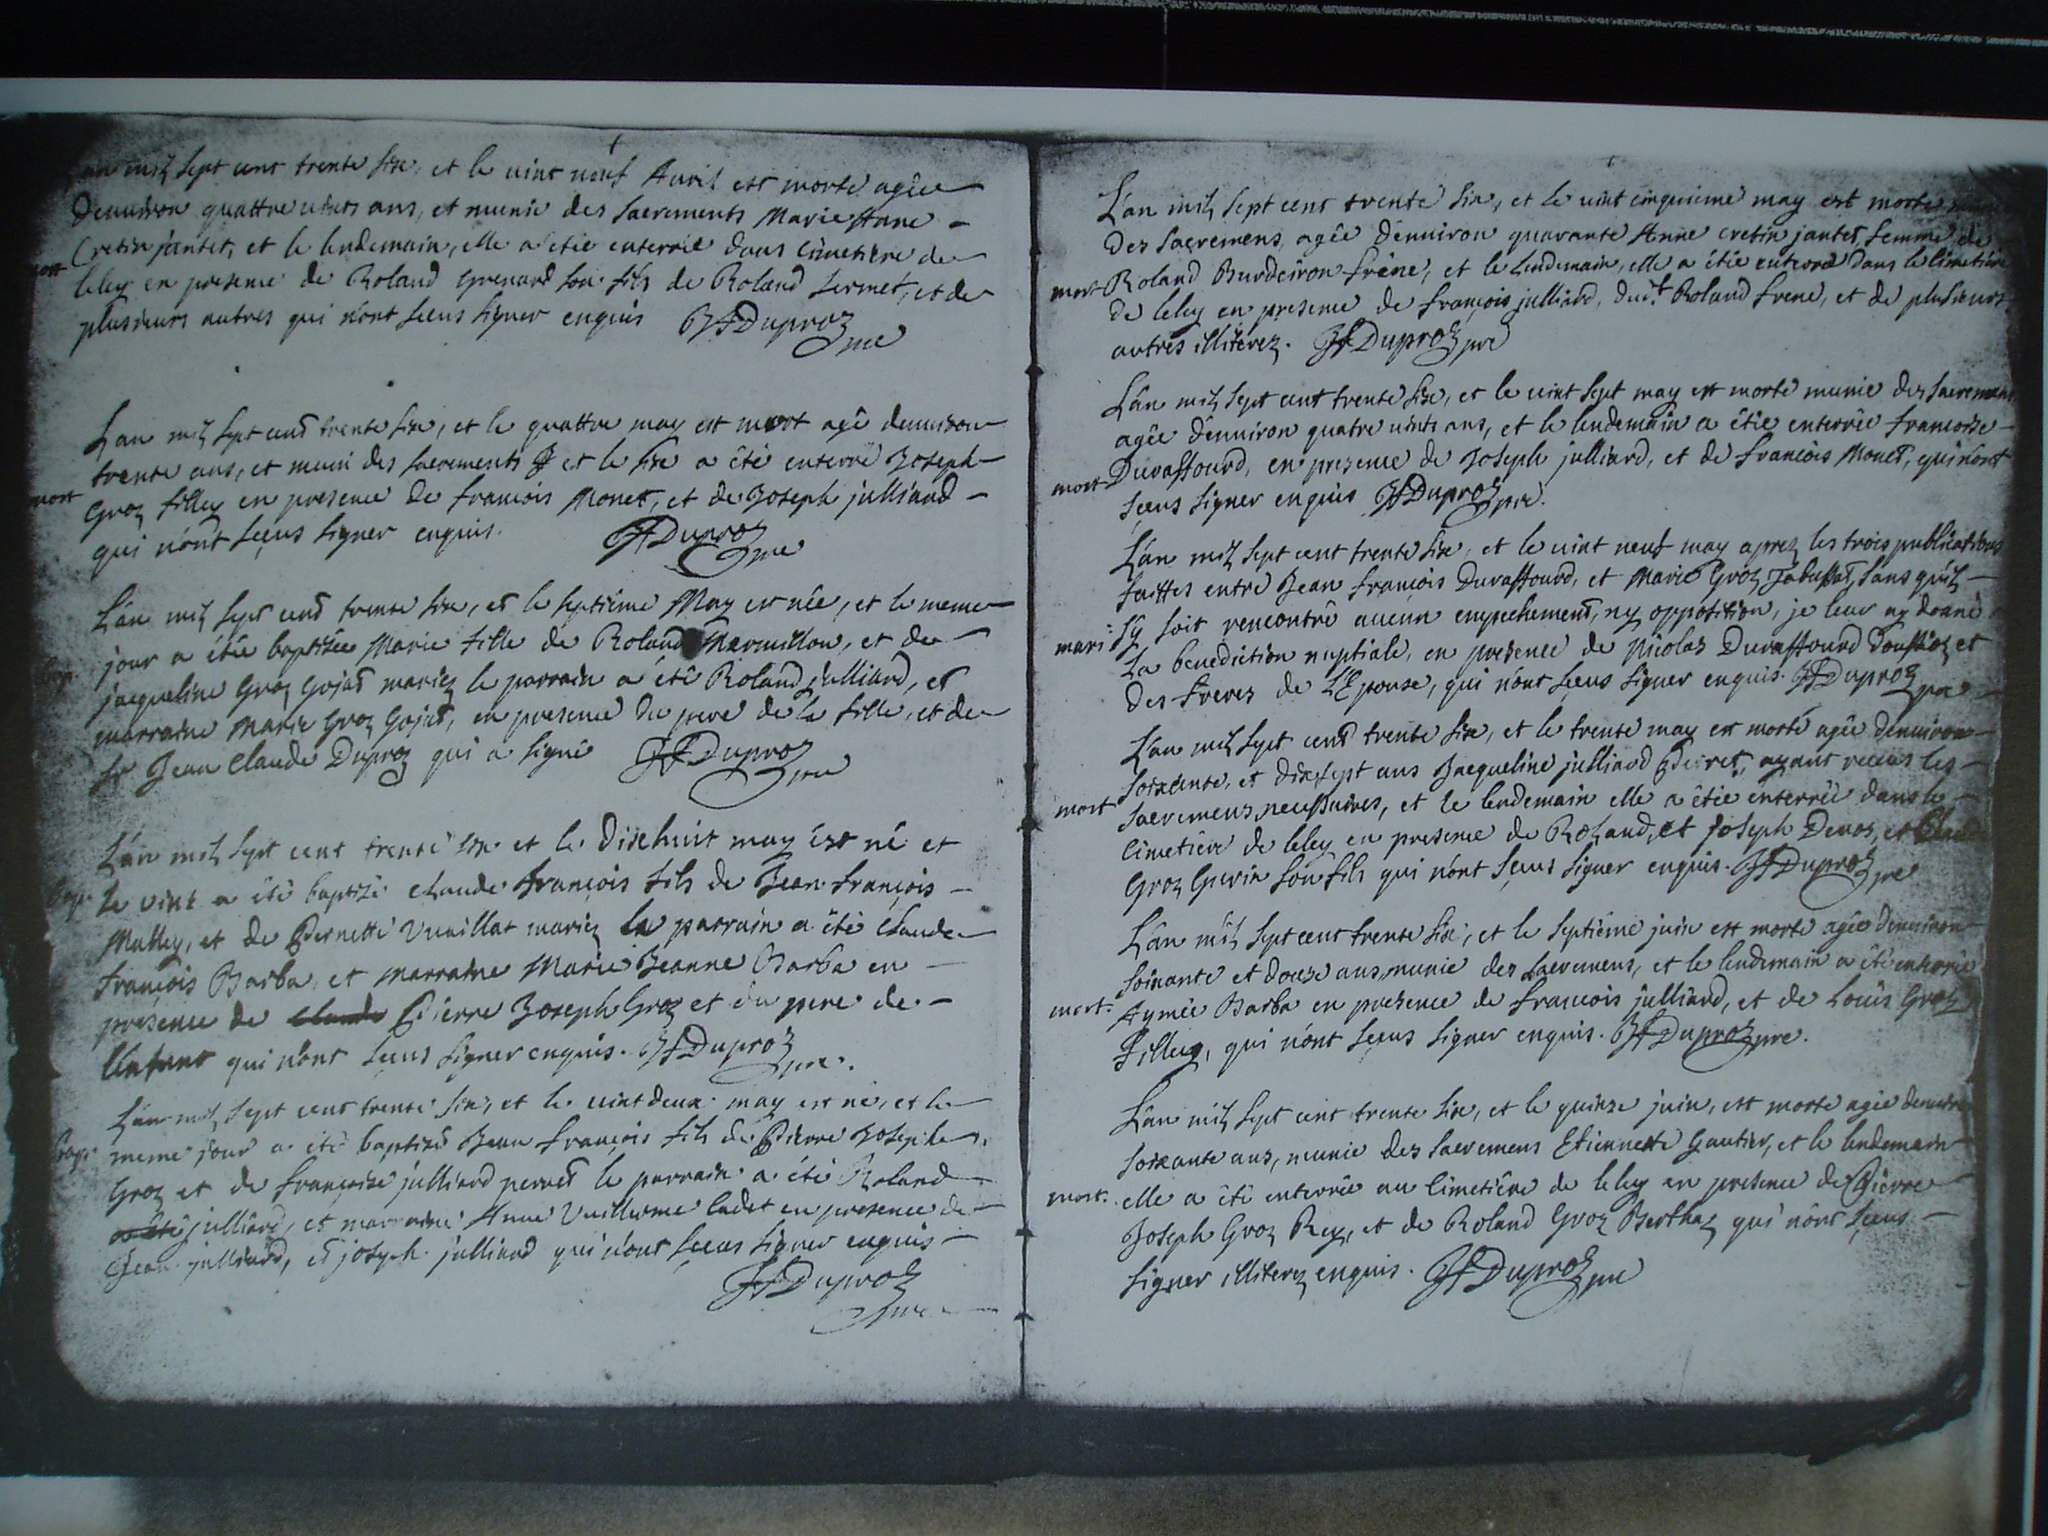 L'an mil sept cent trente six, et le vint neuf Avril est morte agée
denviron quattre vints ans, et munie des sacrements Marie Anne
Cretin jantet, et le lendemain, elle a étée enterrée dans cimetiere de
mort
leley en presence de Roland grenard son fils de Roland Sermet, et de
plusieurs autres qui n'ont sceus signer enquis JfDuproz
pre
L'an mil sept cent trente six, et le quattre may est mort agé denviron
trente ans, et muni des sacrements et le six a été enterré Joseph
mort
Groz filley en presence de francois Monet, et de Joseph julliard
qui n'ont sceus signer enquis. JfDuproz
pre
L'an mil sept cent trente six, et le septième May est née, et le meme
jour a étée baptizée Marie fille de Roland Marmillon, et de
bap.
jacqueline Groz Gojat mariez le parrain a été Roland julliard, et
marraine Marie Groz Gojat, en presence du pere de la fille, et de
sr Jean Claude Duproz qui a signé JfDuproz
pre
L'an mil sept cent trente six et le Dixehuit may est né et
bap.
le vint a été baptizé claude françois fils de Jean françois
Mathey, et de Pernette Vuaillat mariez le parrain a été claude
françois Barba, et marraine Marie Jeanne Barba en
présence de claude Pierre Joseph Groz et du pere de
l'enfant qui n'ont sceus signer enquis. JfDuproz
pre.
L'an mil sept cent trente six, et le vint deux may est né, et le
bap.
meme jour a été baptizé Jean françois fils de Pierre Joseph
Groz et de françoise julliard perret le parrain a été Roland
a été julliard, et marraine Anne Vuillerme Cadet en presence de
Jean julliard, et joseph julliard qui n'ont sceus signer enquis
JfDuproz
pre
L'an mil sept cent trente six, et le vint cinquieme may est morte
des sacremens, agée d'environ quarante Anne cretin jantet, femme de
mort
Roland Burdeiron frêne, et le lendemain, elle a étée enterrée dans le cimetière
de leley en presence de françois julliard, dudt Roland frene, et de plusieurs
autres illiterez. JfDuproz pre
L'an mil sept cent trente six, et le vint sept may est morte munie des sacremens
agée d'environ quatre vints ans, et le lendemain a étée enterrée francoise
mort
Duraffourd, en presence de Joseph julliard, et de francois Monet, qui n'ont
sceus signer enquis JfDuproz pre.
L'an mil sept cent trente six, et le vint neuf may aprez les trois publications
faittes entre Jean francois Duraffourd, et Marie Groz Tabussat, sans qu'il
mari:
s'y soit rencontré aucun empechement, ny opposition, je leur ay donné
La benediction nuptiale, en presence de Nicolas Duraffourd et
des freres de L'Epouse, qui n'ont sceus signer enquis. JfDuproz pre
L'an mil sept cent trente six, et le trente may est morte agée denviron
soixante, et dixsept ans Jacqueline julliard Perret, ayant receus les
mort
sacremens necessaires, et le lendemain elle a étée enterrée dans le
cimetière de leley en presence de Roland, et joseph Devos, et Claude
Groz Guerin son fils qui n'ont sceus signer enquis. JfDuproz pre
L'an mil sept cent trente six, et le septiéme juin est morte agée denviron
soixante et douze ans munie des sacremens, et le lendemain a été enterrée
mort.
Aymée Barba en presence de francois julliard, et de Louis Groz
filley, qui n'ont sceus signer enquis. JfDuproz pre.
L'an mil sept cent trente six, et le quinze juin, est morte agée denviron
soixante ans, munie des sacremens Etiennette Gautier, et le lendemain
mort.
elle a été enterrée au cimetière de leley en presence de Pierre
Joseph Groz Rey, et de Roland Groz Berthaz qui n'ont sceus
signer illiterez enquis. JfDuproz pre